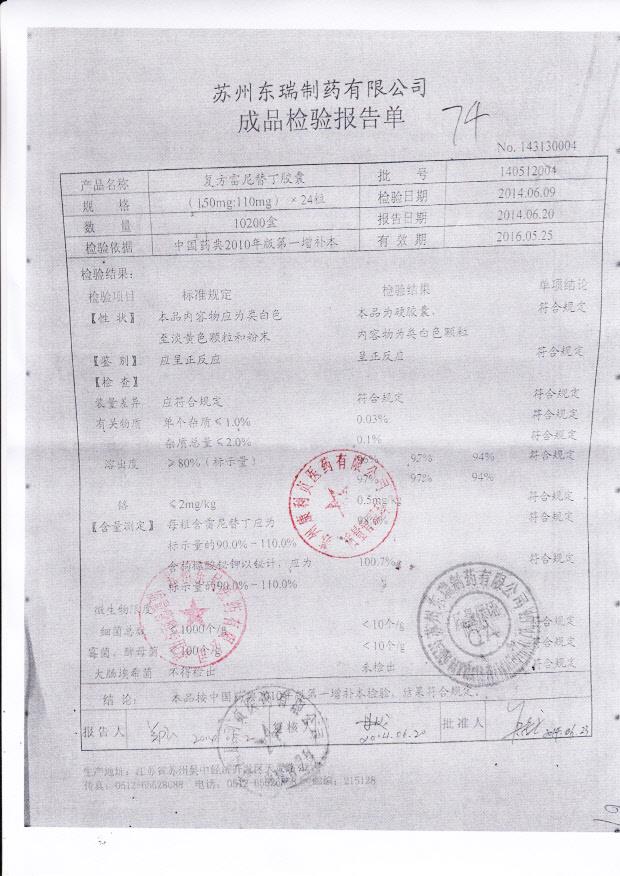 苏州东瑞制药有限公司
成品检验报告单
74
No. 143130004
产品名称 复方雷尼替丁胶囊 批 号 140512004
规 格 (150mg:110mg) ×24粒 检验日期 2014.06.09
数 量 10200盒 报告日期 2014.06.20
检验依据 中国药典2010年版第一增补本 有 效 期 2016.05.25
检验结果:
检验项目 标准规定 检验结果 单项结论
【性 状】 本品内容物应为类白色 本品为硬胶囊, 符合规定
至淡黄色颗粒和粉末 内容物为类白色颗粒
【鉴 别】 应呈正反应 呈正反应 符合规定
【检 查】
装量差异 应符合规定 符合规定 符合规定
有关物质 单个杂质≤1.0% 0.03% 符合规定
杂质总量≤2.0% 0.1% 符合规定
溶出度 ≥80%(标示量) 95% 94% 符合规定
97% 97% 94%
铬 ≤2mg/kg 0.5mg/kg 符合规定
【含量测定】 每粒含雷尼替丁应为 符合规定
标示量的90.0%-110.0%
含枸橼酸铋钾以铋计,应为 100.7% 符合规定
标示量的90.0%-110.0%
微生物限度
细菌总数 ≤1000个/g <10个/g 符合规定
霉菌、酵母菌 100个/g <10个/g 符合规定
大肠埃希菌 不得检出 未检出 符合规定
结 论: 本品按中国药典2010年版第一增补本检验,结果符合规定。
报告人 复核人 2014.06.20 批准人 2014.06.23
生产地址:江苏省苏州吴中经济开发区
传真:0512-65628088 电话:0512 邮编:215128